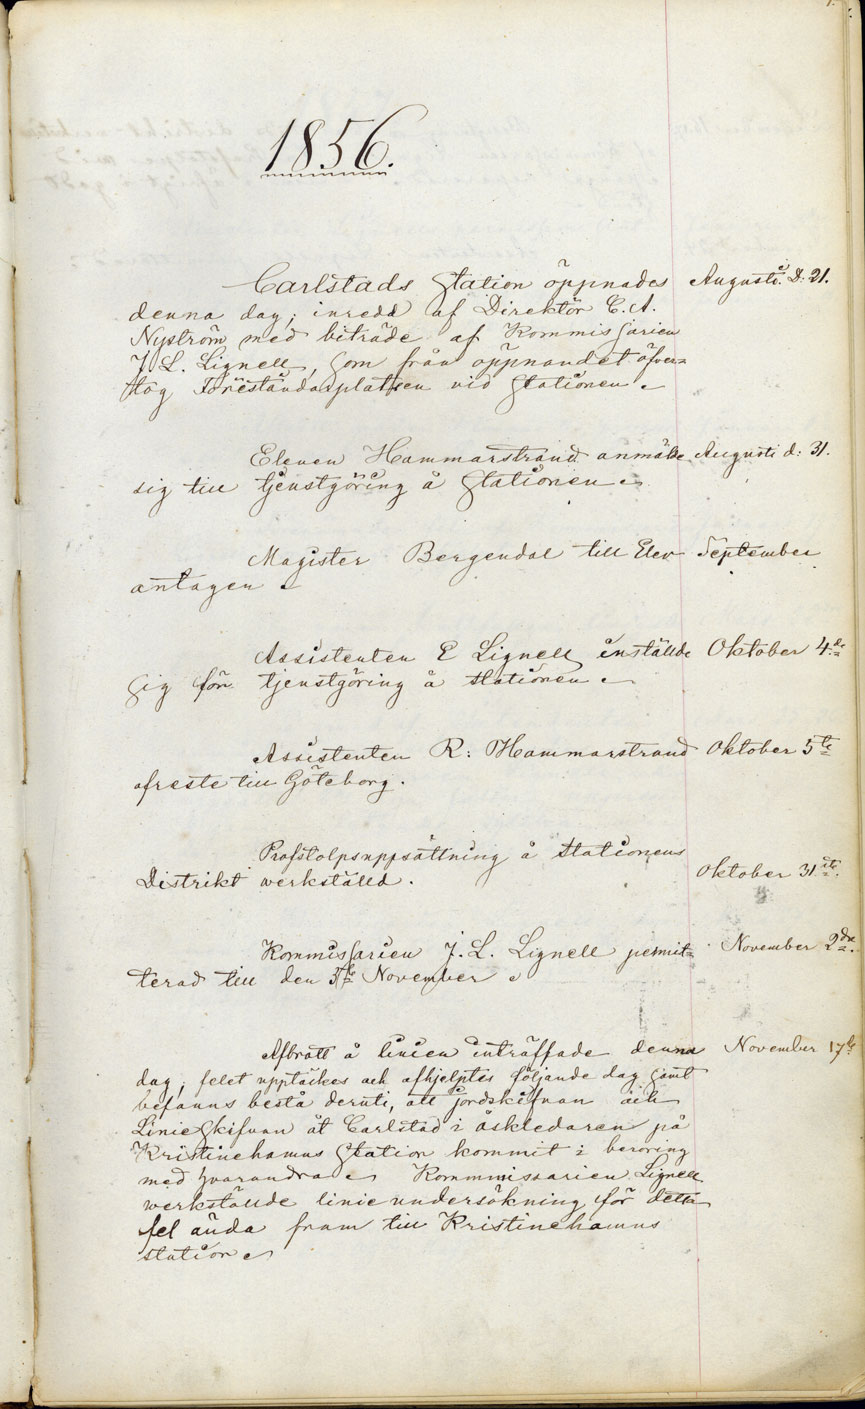 1.
1856.
Carlstads Station öppnades Augusti. D: 21.
denna dag; inredd af Direktör C. A.
Nyström med biträde af Kommissarien
J. L. Lignell, som från öppnandet öfver=
tog Föreståndareplatsen vid Stationen.
Eleven Hammarstrand anmälde Augusti d: 31.
sig till tjenstgöring å Stationen.
Magister Bergendal till Elev September
antagen.
Assistenten E Lignell inställde Oktober 4de
sig för tjenstgöring å stationen.
Assistenten R: Hammarstrand Oktober 5te
afreste till Göteborg.
Profstolpsuppsättning å Stationens
Distrikt werkställd. Oktober 31sta.
Kommissarien J. L. Lignell permit= November 2dra.
terad till den 5te November.
Afbrott å linien inträffade denna November 17de
dag, felet upptäcktes och afhjelptes följande dag samt
befanns bestå deruti, att jordskifvan och
Linieskifvan åt Carlstad i åskledaren på
Kristinehamns Station kommit i beröring
med hvarandra. Kommissarien Lignell
werkställde linieundersökning för detta
fel ända fram till Kristinehamns
station.